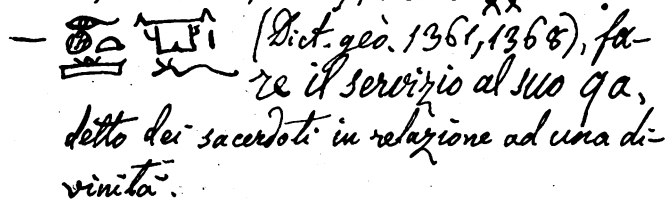 — (Dict. géo. 1361, 1368), fa-
re il servizio al suo qa,
detto dei sacerdoti in relazione ad una di-
vinità.